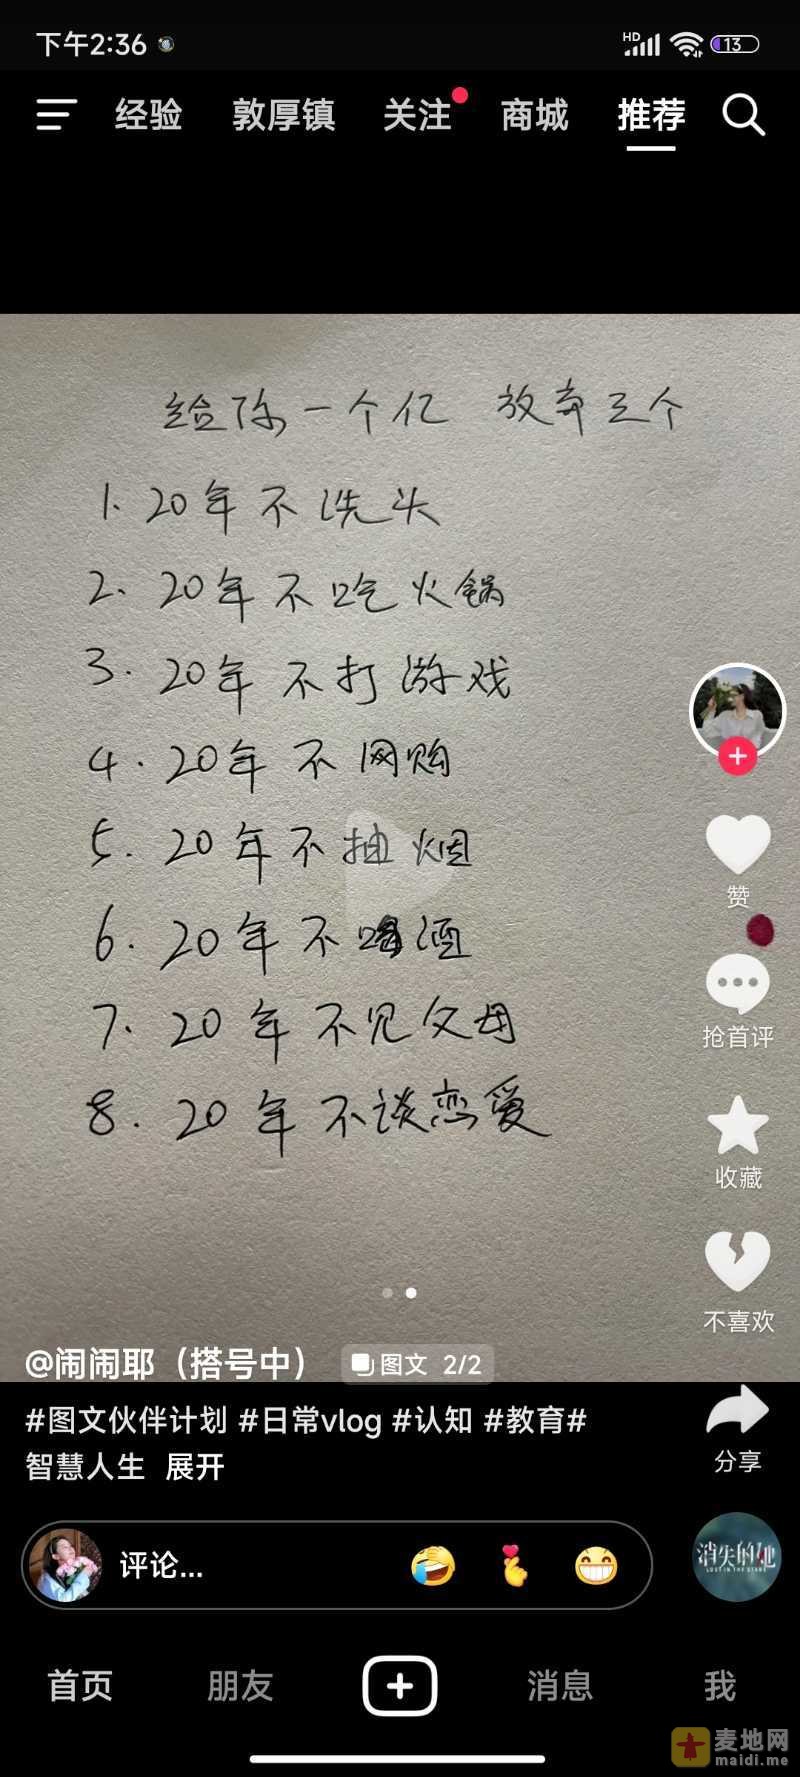 下午2:36
HD
13
经验 敦厚镇 关注 商城 推荐
给你一个亿 放弃三个
1. 20年不洗头
2. 20年不吃火锅
3. 20年不打游戏
4. 20年不网购
5. 20年不抽烟
6. 20年不喝酒
7. 20年不见父母
8. 20年不谈恋爱
赞
抢首评
收藏
不喜欢
分享
@闹闹耶（搭号中）
图文 2/2
#图文伙伴计划 #日常vlog #认知 #教育#
智慧人生 展开
评论...
消失的她
LOST IN THE STARS
首页 朋友 消息 我
麦地网
maidi.me